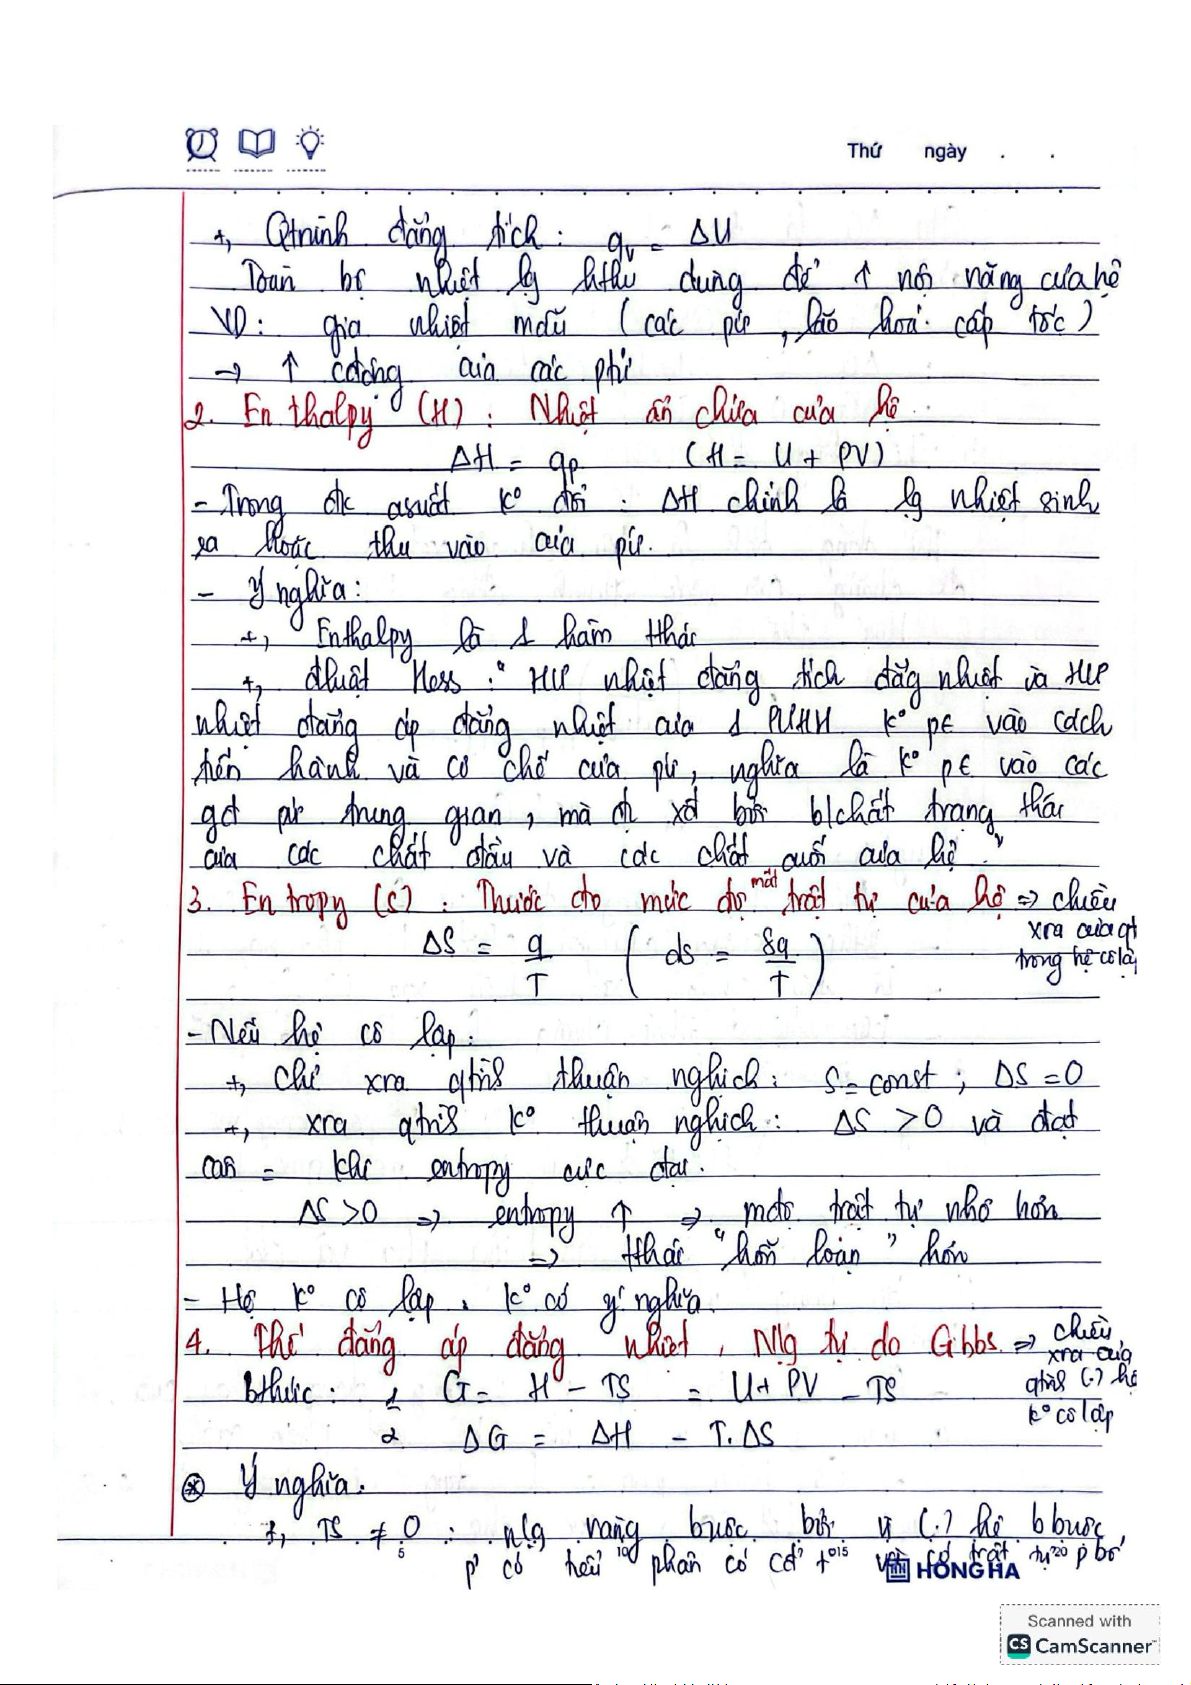 Thứ ngày . .
+, Qtrình đẳng tích : qv = ΔU
Toàn bộ nhiệt lg hthụ dùng để ↑ nội năng của hệ
VD: gia nhiệt mẫu (các pứ, lão hoá cấp tốc)
→ ↑ cđộng của các phtử
2. Enthalpy (H) : Nhiệt ẩn chứa của hệ
ΔH = qp (H = U + PV)
- Trong đk asuất k° đổi : ΔH chính là lg nhiệt sinh
ra hoặc thu vào của pứ.
- Ý nghĩa :
+, Enthalpy là 1 hàm tthái
+, đluật Hess : " HƯ nhiệt đẳng tích đẳg nhiệt và HƯ
nhiệt đẳng áp đẳng nhiệt của 1 PƯHH k° p∈ vào cách
tiến hành và cơ chế của pứ, nghĩa là k° p∈ vào các
gđ pứ trung gian, mà đc xđ bởi b/chất trạng thái
của các chất đầu và các chất cuối của hệ "
3. Entropy (S) : Thước đo mức độ mất trật tự của hệ ⇒ chiều
xra của qt
trong hệ cô lập
ΔS = q/T ( ds = δq/T )
- Nếu hệ cô lập :
+, Chỉ xra qtrình thuận nghịch : S = const ; ΔS = 0
+, xra qtrình k° thuận nghịch : ΔS > 0 và đạt
cân = khi entropy cực đại.
ΔS > 0 ⇒ entropy ↑ ⇒ mđộ trật tự nhỏ hơn
⇒ tthái " hỗn loạn " hơn
- Hệ k° cô lập , k° có ý nghĩa.
4. Thế đẳng áp đẳng nhiệt , Nlg tự do Gibbs ⇒ chiều
xra của
qtrình (.) hệ
k° cô lập
Bthức : 1 G = H - TS = U + PV - TS
2 ΔG = ΔH - T.ΔS
⊛ Ý nghĩa :
+, TS ≠ 0 : nlg ràng buộc bởi vì (.) hệ b buộc
p' có tiểu phân có cđ' và có trật tự p bố
5 10 15 20
HONG HA
Scanned with
CS CamScanner